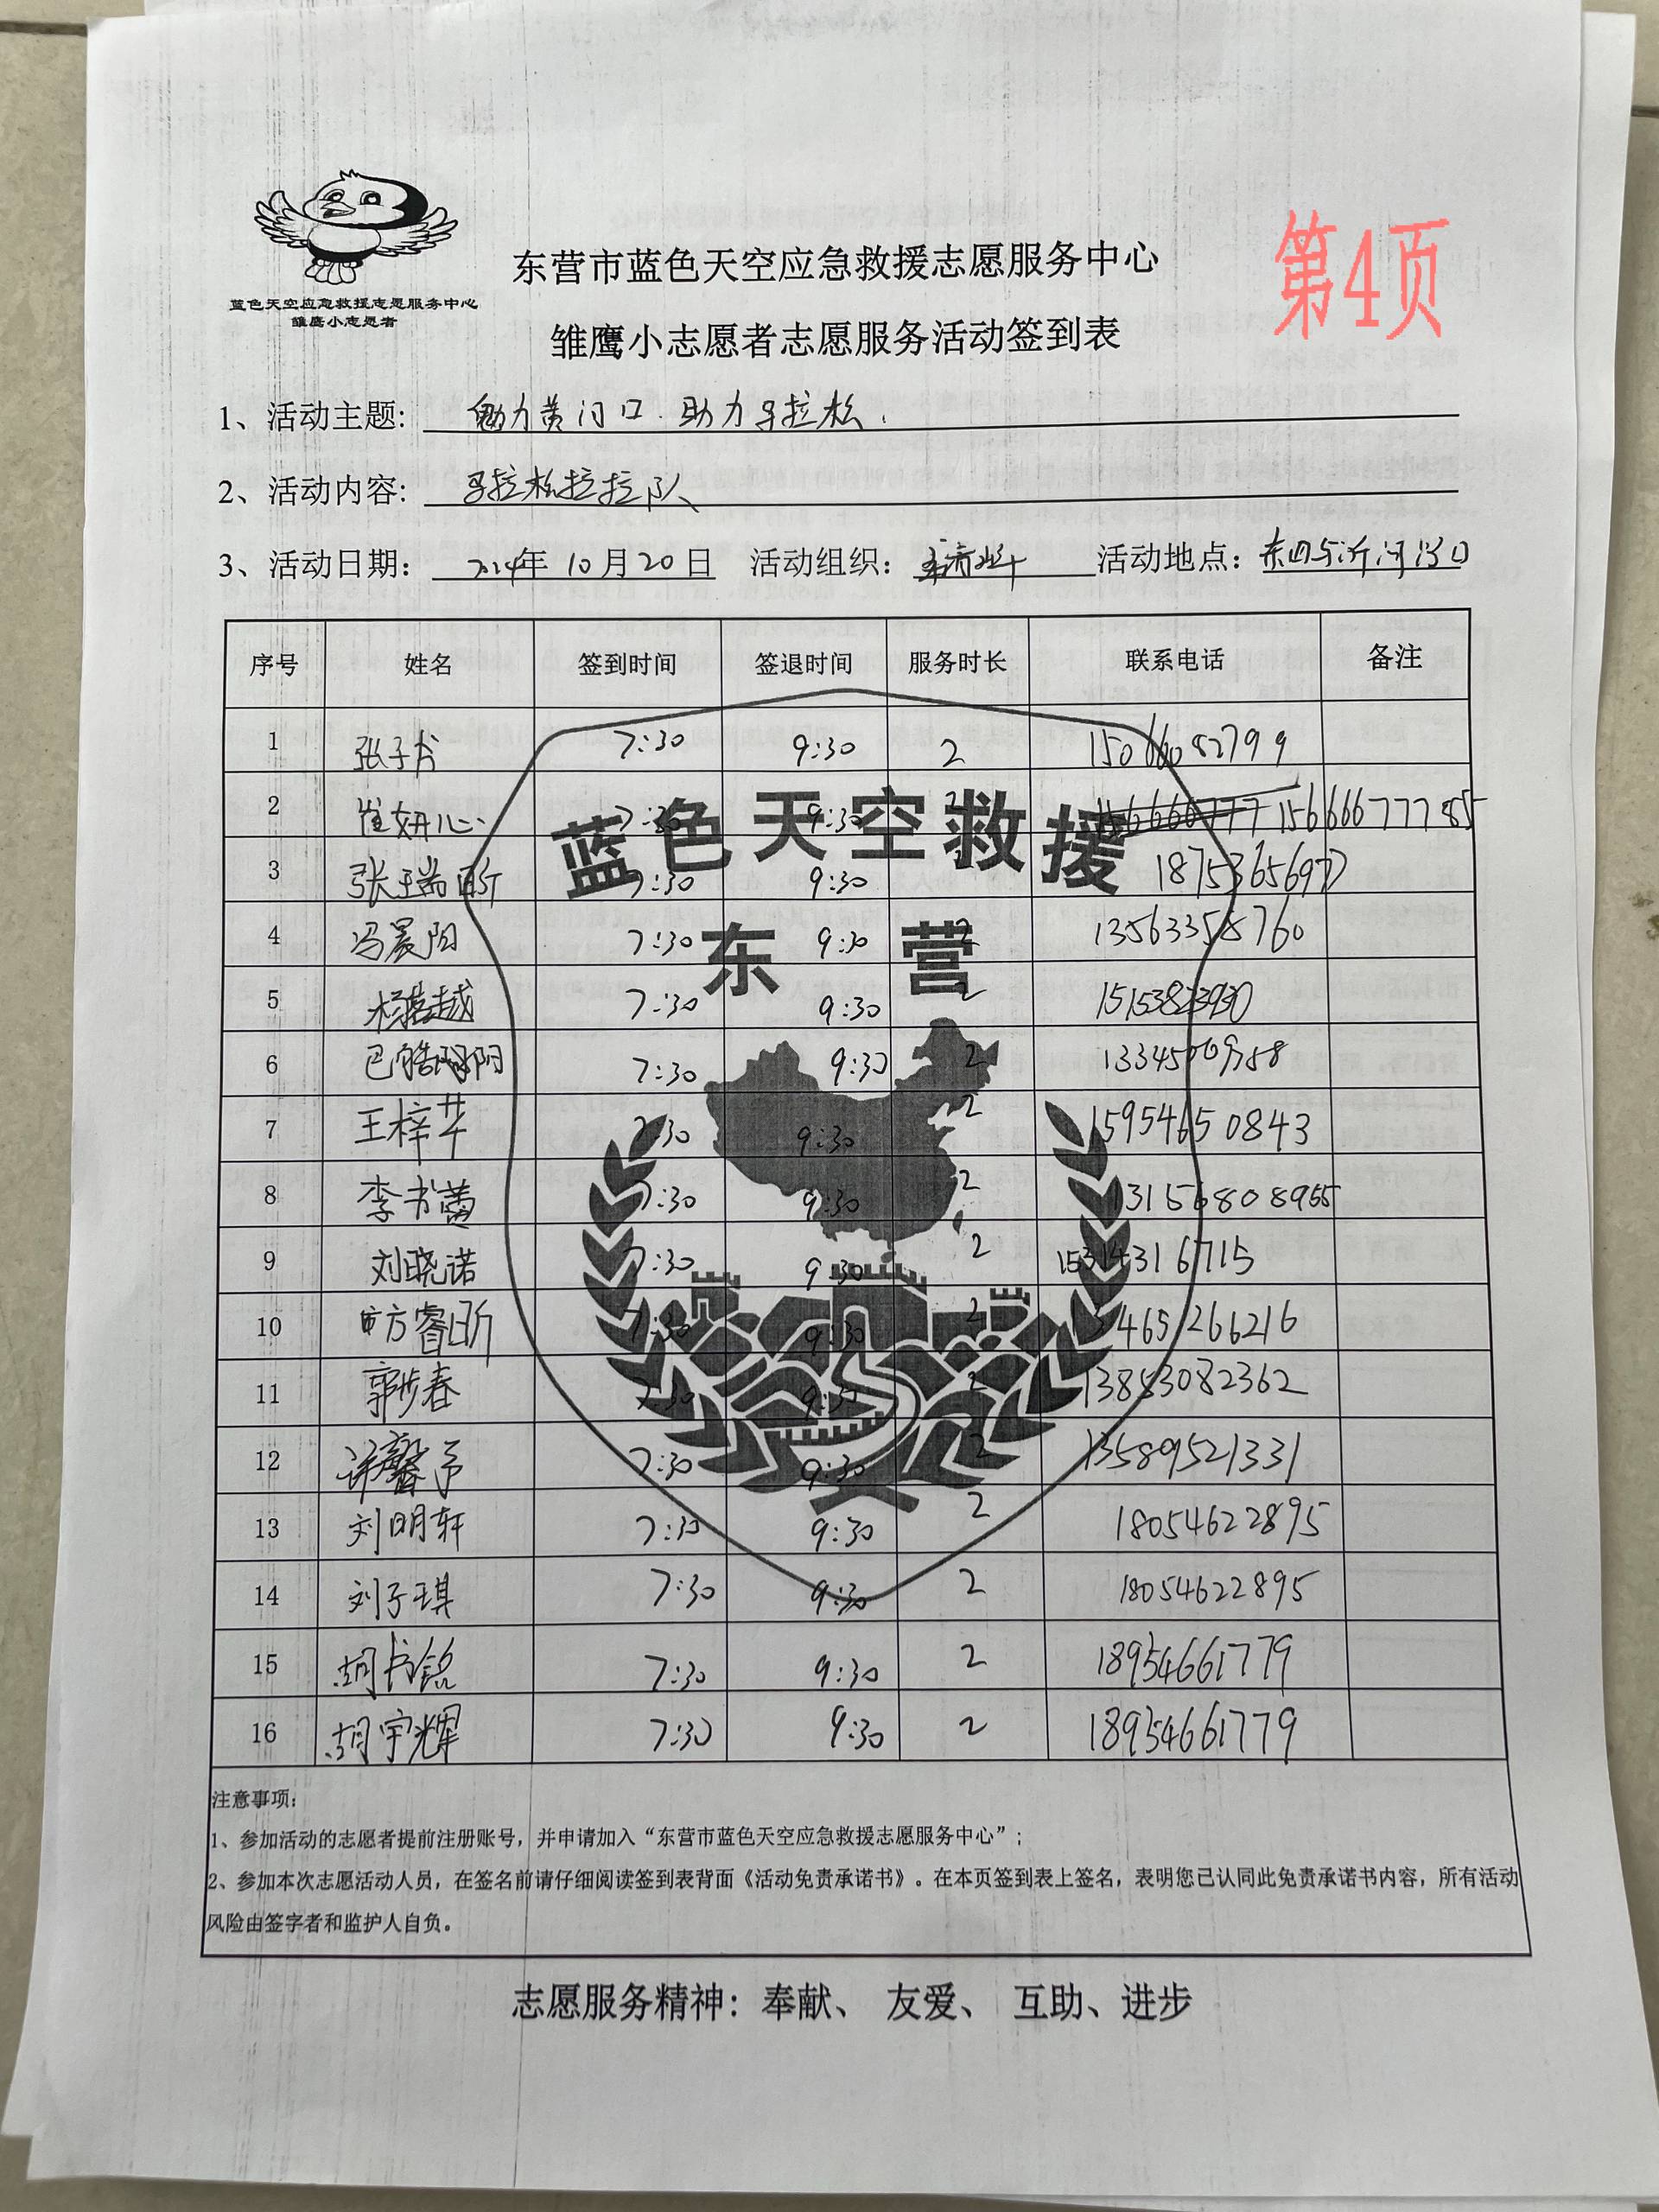 蓝色天空应急救援志愿服务中心
雏鹰小志愿者
第4页
东营市蓝色天空应急救援志愿服务中心
雏鹰小志愿者志愿服务活动签到表
1、活动主题: 魅力黄河口.助力马拉松.
2、活动内容: 马拉松拉拉队
3、活动日期: 2024年10月20日 活动组织: 活动地点: 东四与沂河路口
序号 姓名 签到时间 签退时间 服务时长 联系电话 备注
1 张子书 7:30 9:30 2 15066082799
2 崔妍心 7:30 9:30 2 15666677785
3 张瑞昕 7:30 9:30 2 18753656977
4 冯晨阳 7:30 9:30 2 13563358760
5 7:30 9:30 2 15153823930
6 7:30 9:30 2
7 王梓华 7:30 9:30 2 15954650843
8 李书蕾 7:30 9:30 2 13156808965
9 刘晓诺 7:30 9:30 2 15314316715
10 方睿昕 7:30 9:30 2 13465266216
11 郭步春 7:30 9:30 2 13853082362
12 许馨予 7:30 9:30 2 13589521331
13 刘明轩 7:30 9:30 2 18054622895
14 刘子琪 7:30 9:30 2 18054622895
15 胡书铭 7:30 9:30 2 18954661779
16 胡宇辉 7:30 9:30 2 18954661779
蓝色天空救援
东营
注意事项:
1、参加活动的志愿者提前注册账号，并申请加入“东营市蓝色天空应急救援志愿服务中心”；
2、参加本次志愿活动人员，在签名前请仔细阅读签到表背面《活动免责承诺书》。在本页签到表上签名，表明您已认同此免责承诺书内容，所有活动
风险由签字者和监护人自负。
志愿服务精神: 奉献、 友爱、 互助、进步